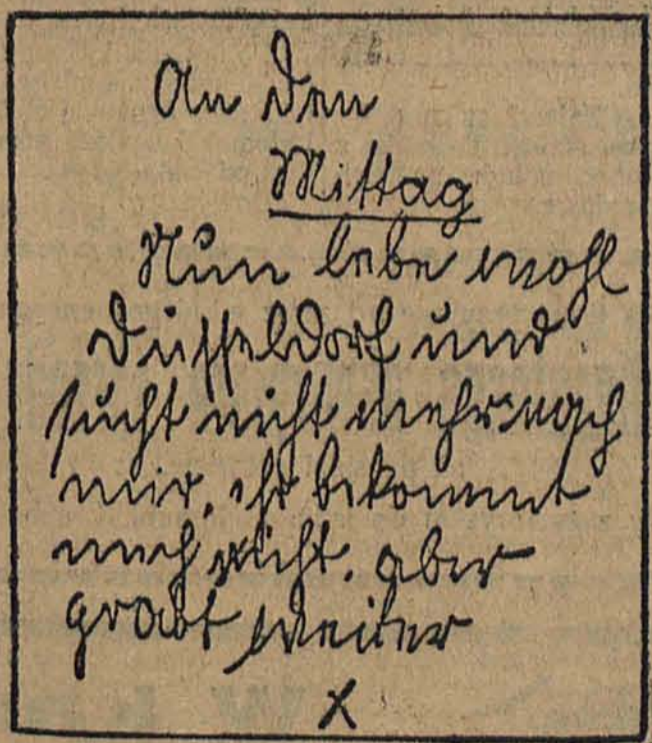 An den
Mittag
Nun lebe wohl
Düsseldorf und
sucht nicht mehr nach
mir, ihr bekommt
mich nicht. aber
grabt weiter
X